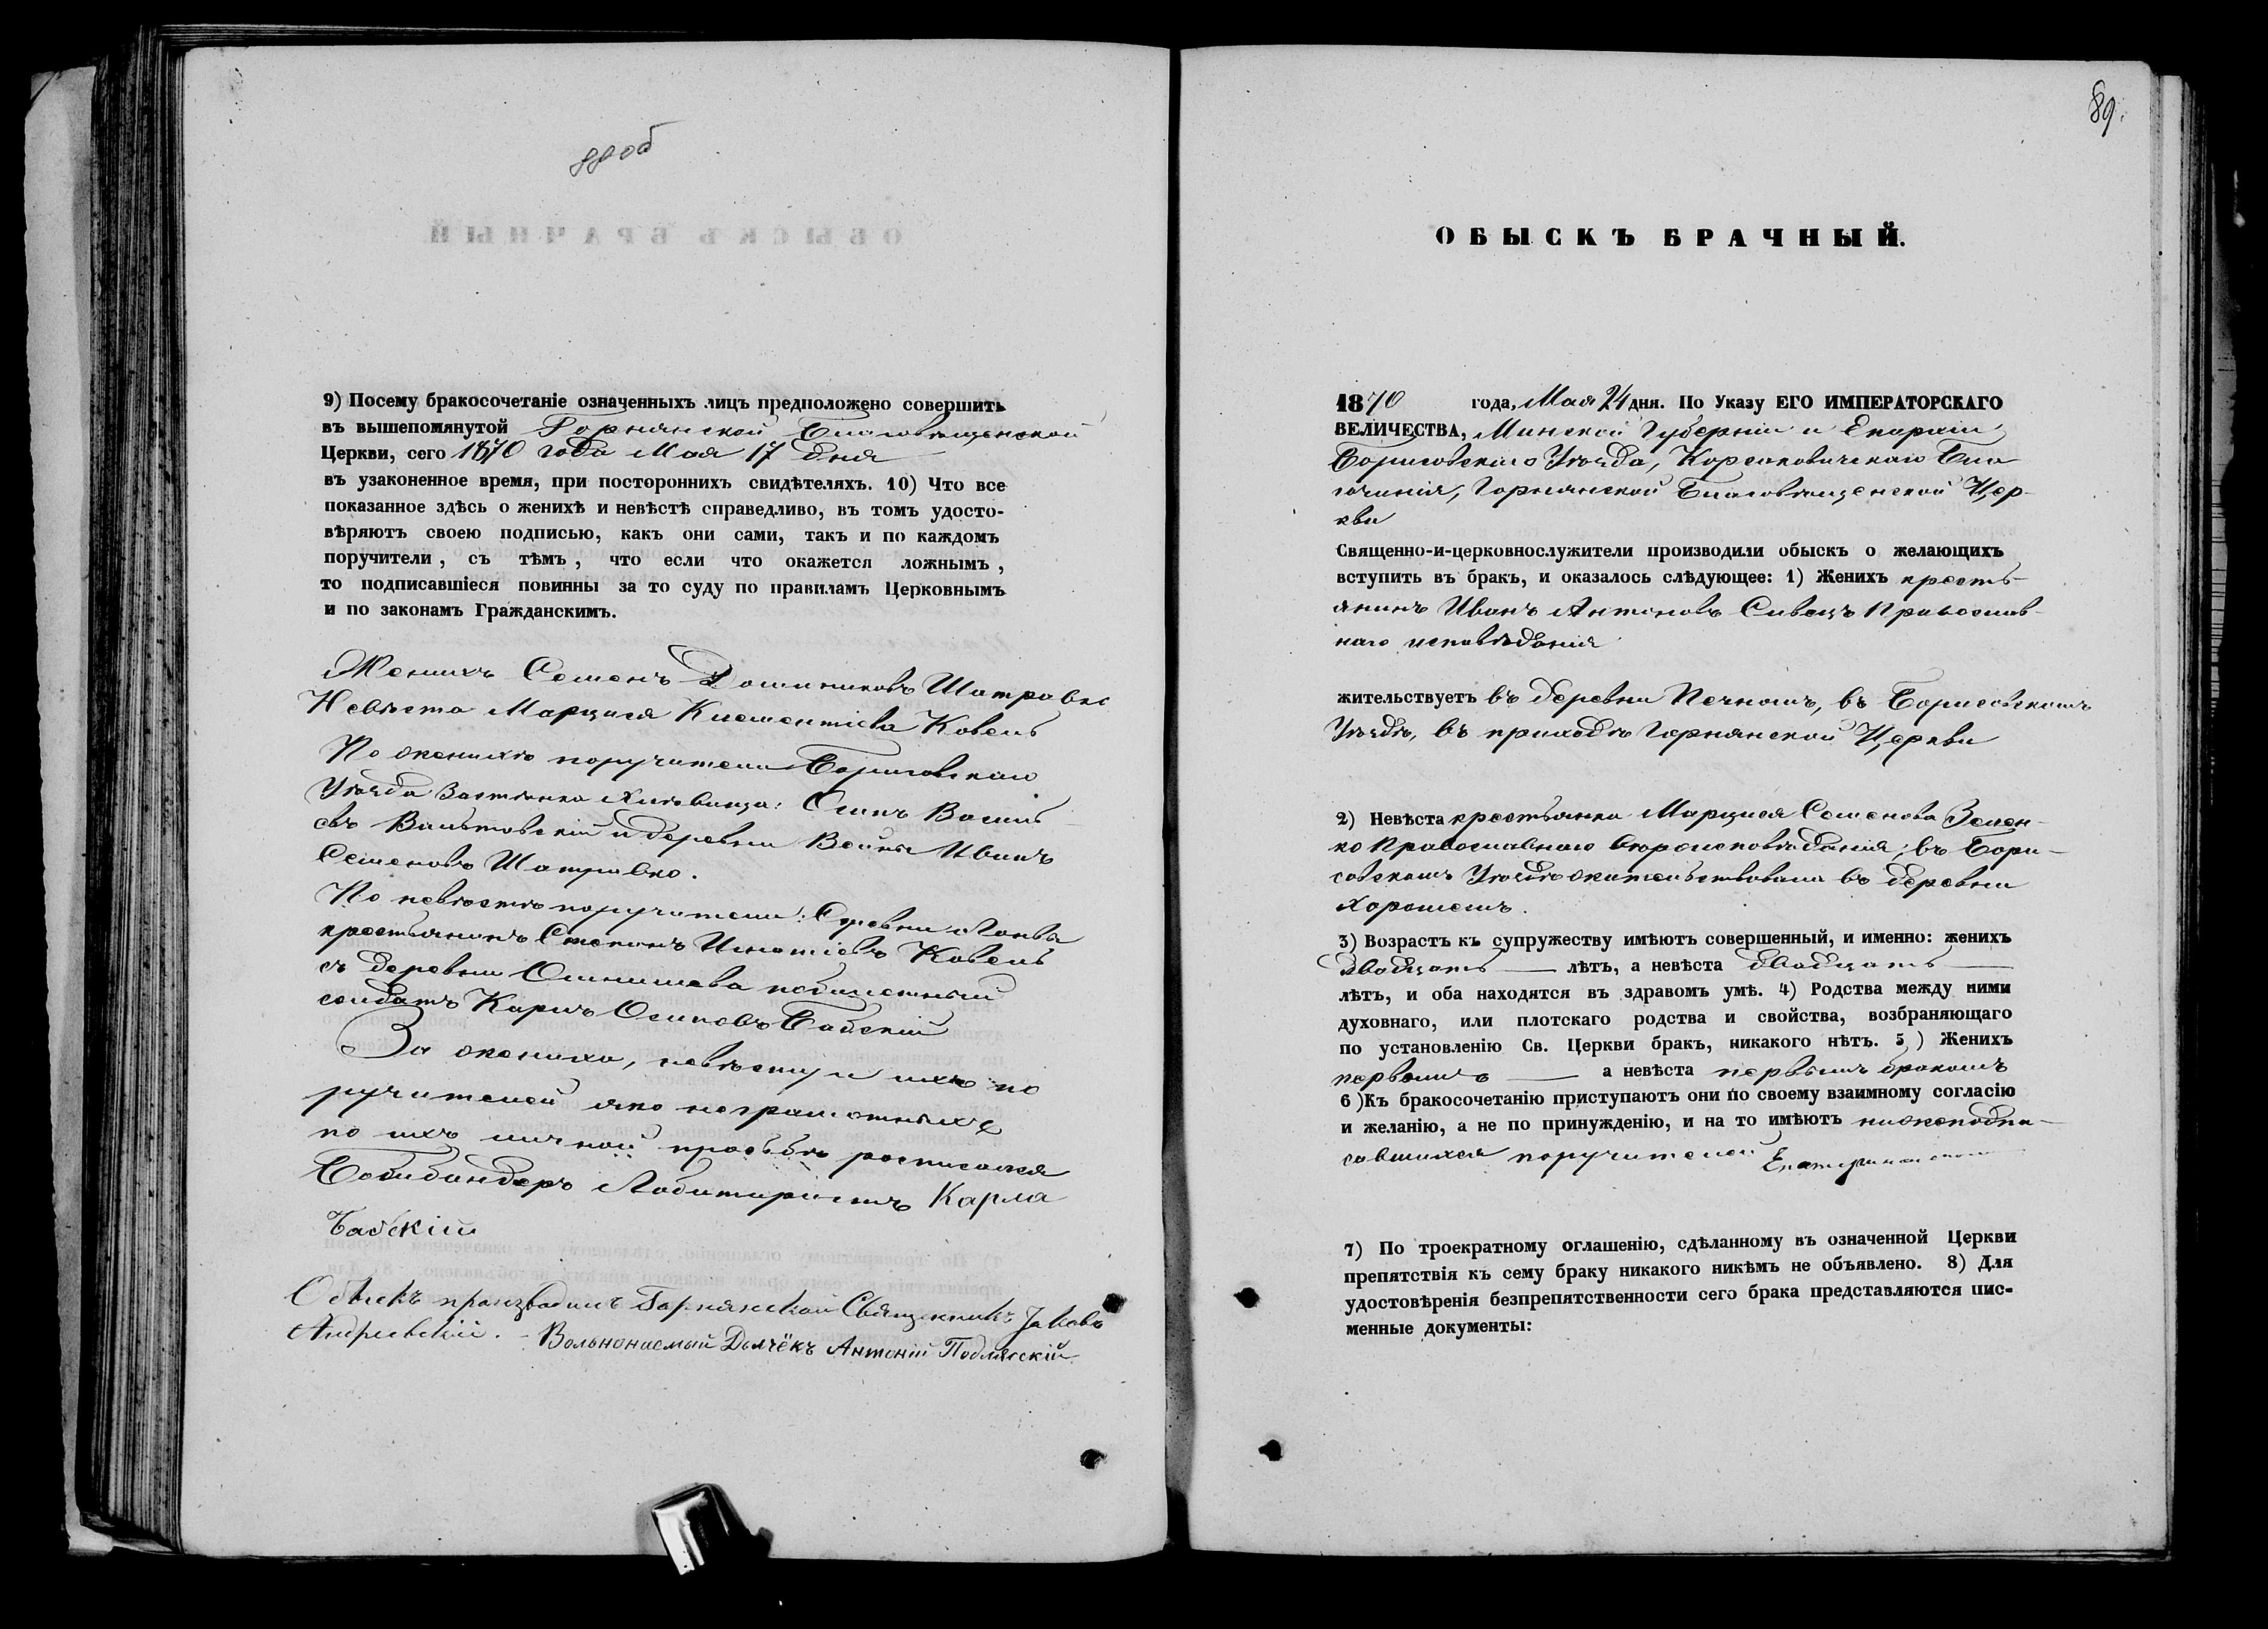 88 об
9) Посему бракосочетаніе означенныхъ лицъ предположено совершить
въ вышепомянутой Горнянской Благовѣщенской
Церкви, сего 1870 года Мая 17 дня
въ узаконенное время, при постороннихъ свидѣтеляхъ. 10) Что все
показанное здѣсь о женихѣ и невѣстѣ справедливо, въ томъ удосто-
вѣряютъ своею подписью, какъ они сами, такъ и по каждомъ
поручители, съ тѣмъ, что если что окажется ложнымъ,
то подписавшіеся повинны за то суду по правиламъ Церковнымъ
и по законамъ Гражданскимъ.
Женихъ Семенъ Доминиковъ Шатравко
Невѣста Марцеля Клементіева Ковель
По женихѣ поручители Борисовскаго
Уѣзда Застѣнка Осипъ
евъ и деревни Иванъ
Семеновъ Шатравко.
По невѣстѣ поручители: Деревни
крестьянинъ Степанъ Игнатіевъ Ковель
съ деревни
солдатъ Карлъ Осиповъ Бабскій
За жениха, невѣсту и ихъ по
ручителей яко неграмотныхъ
по ихъ личной прозьбѣ росписался
Карла
Бабскій
Обыскъ произвадилъ Горнянской Священникъ Іаковъ
Андріевскій. - Вольнонаемый Дьячёкъ Антоній Подлясскій
89.
ОБЫСКЪ БРАЧНЫЙ.
1870 года, Мая 24 дня. По Указу ЕГО ИМПЕРАТОРСКАГО
ВЕЛИЧЕСТВА, Минской Губерніи и Епархіи
Борисовскаго Уѣзда, Корсаковичскаго Бла
гочинія, Горнянской Благовѣщенской Цер-
кви
Священно-и-церковнослужители производили обыскъ о желающихъ
вступить въ бракъ, и оказалось слѣдующее: 1) Женихъ кресть-
янинъ Иванъ Антоновъ Сивецъ Православ-
наго исповѣданія
жительствуетъ въ деревни Печномъ, въ Борисовскомъ
Уѣздѣ, въ приходѣ Горнянской Церкви
2) Невѣста крестьянка Марцеля Семенова Зелен-
ко Православнаго Вѣроисповѣданія, въ Бори-
совскомъ Уѣздѣ жительствовала въ деревни
Хорошемъ.
3) Возрастъ къ супружеству имѣютъ совершенный, и именно: женихъ
двадцать — лѣтъ, а невѣста двадцать —
лѣтъ, и оба находятся въ здравомъ умѣ. 4) Родства между ними
духовнаго, или плотскаго родства и свойства, возбраняющаго
по установленію Св. Церкви бракъ, никакого нѣтъ. 5) Женихъ
первымъ — а невѣста первымъ бракомъ
6) Къ бракосочетанію приступаютъ они по своему взаимному согласію
и желанію, а не по принужденію, и на то имѣютъ нижеподпи-
савшихся поручителей
7) По троекратному оглашенію, сдѣланному въ означенной Церкви
препятствія къ сему браку никакого никѣмъ не объявлено. 8) Для
удостовѣренія безпрепятственности сего брака представляются пис-
менные документы: